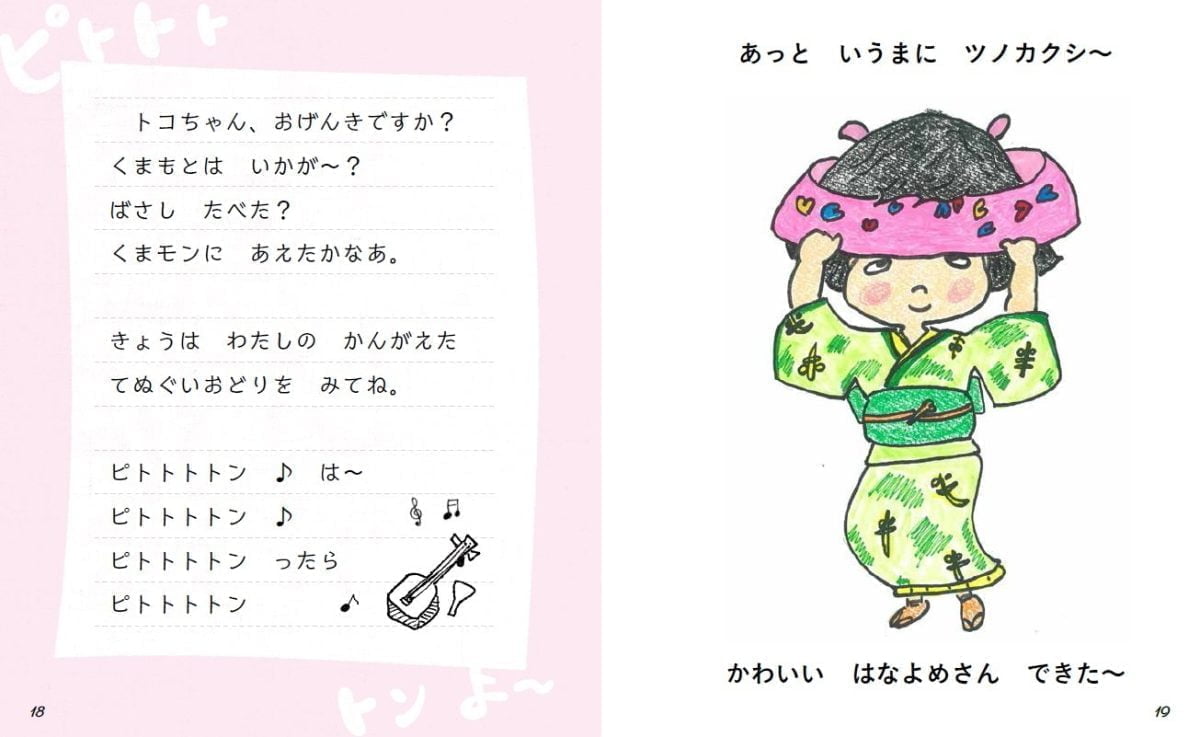 ピトトト
トコちゃん、おげんきですか?
くまもとは　いかが〜?
ばさし　たべた?
くまモンに　あえたかなあ。
きょうは　わたしの　かんがえた
てぬぐいおどりを　みてね。
ピトトトトン　♪　は〜
ピトトトトン　♪
ピトトトトン　ったら
ピトトトトン
トン よ〜
18
あっと　いうまに　ツノカクシ〜
かわいい　はなよめさん　できた〜
19